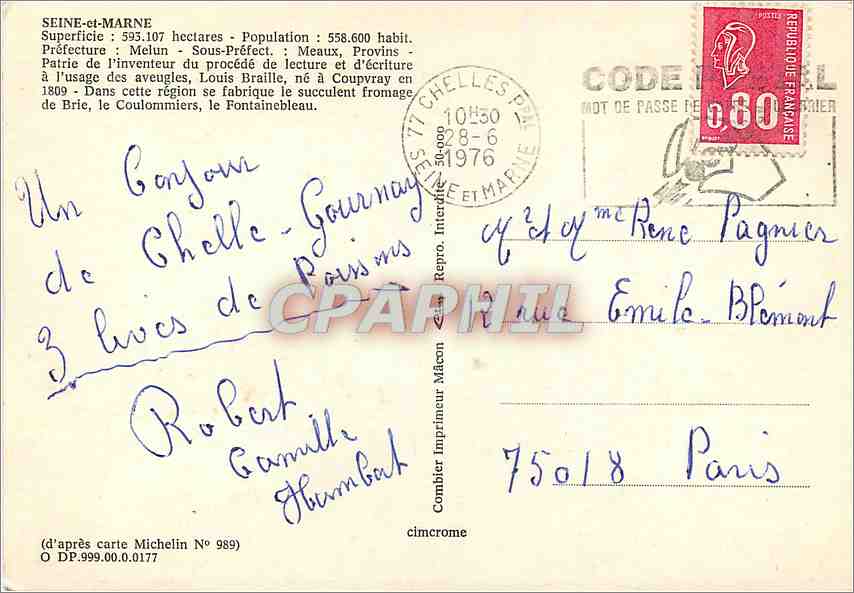 SEINE-et-MARNE
Superficie : 593.107 hectares - Population : 558.600 habit.
Préfecture : Melun - Sous-Préfect. : Meaux, Provins -
Patrie de l'inventeur du procédé de lecture et d'écriture
à l'usage des aveugles, Louis Braille, né à Coupvray en
1809 - Dans cette région se fabrique le succulent fromage
de Brie, le Coulommiers, le Fontainebleau.
77 CHELLES Pal
10H30
28-6
1976
SEINE ET MARNE
CODE
MOT DE PASSE DE
POSTES
REPUBLIQUE FRANÇAISE
0,80
Un Bonjour
de Chelle-Gournay
3 livres de Poissons
Robert
Camille
Humbert
Mr et Mme René Pagnier
12 rue Emile-Blémont
75018 Paris
CPAPHIL
Combier Imprimeur Mâcon Repro. Interdite 50-000
cimcrome
(d'après carte Michelin Nº 989)
O DP.999.00.0.0177